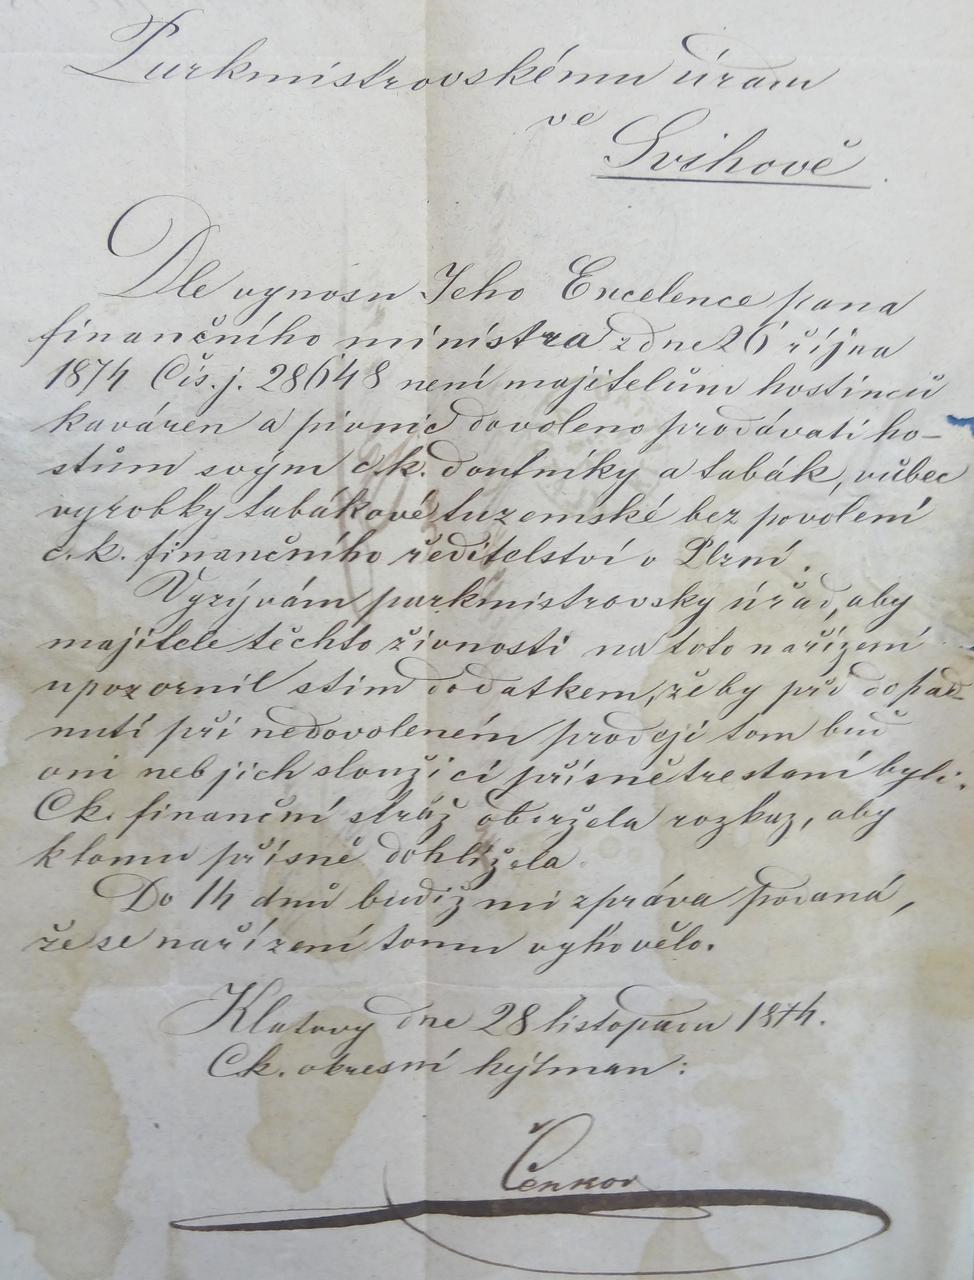 Purkmistrovskému úřadu
ve
Švihově
Dle vynosu Jeho Excelence pana
finančního ministra z dne 26 října
1874 Čís. j. 28648 není majitelům hostinců
kaváren a pivnic dovoleno prodávati ho-
stům svým c.k. doutníky a tabák, vůbec
vyrobky tabákové tuzemské bez povolení
c. k. finančního ředitelství v Plzni.
Vyzývám purkmistrovsky úřad, aby
majitele těchto živností na toto nařízení
upozornil s tím dodatkem, že by při dopad-
nutí při nedovoleném prodeji tom buď
oni neb jich sloužicí přísně trestaní byli.
Ck. finanční stráž obržela rozkaz, aby
k tomu přísně dohlížela.
Do 14 dnů budiž mi zpráva podaná,
že se nařízení tomu vyhovělo.
Klatovy dne 28 listopadu 1874.
Ck. okresní hejtman: